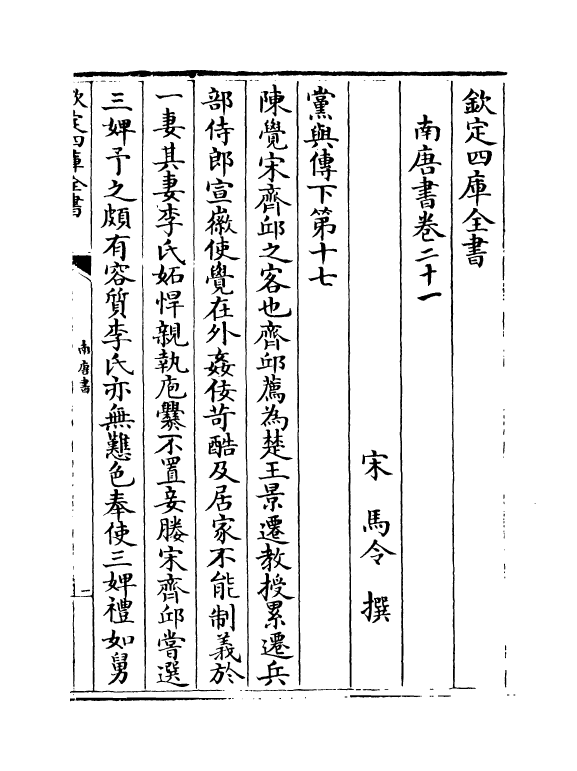 欽定四庫全書
南唐書卷二十一
宋 馬令 撰
黨與傳下第十七
陳覺宋齊邱之客也齊邱薦為楚王景遷教授累遷兵
部侍郎宣徽使覺在外姦佞苛酷及居家不能制義於
一妻其妻李氏妬悍親執庖爨不置妾媵宋齊邱嘗選
三婢予之頗有容質李氏亦無難色奉使三婢禮如舅
欽定四庫全書
南唐書
一